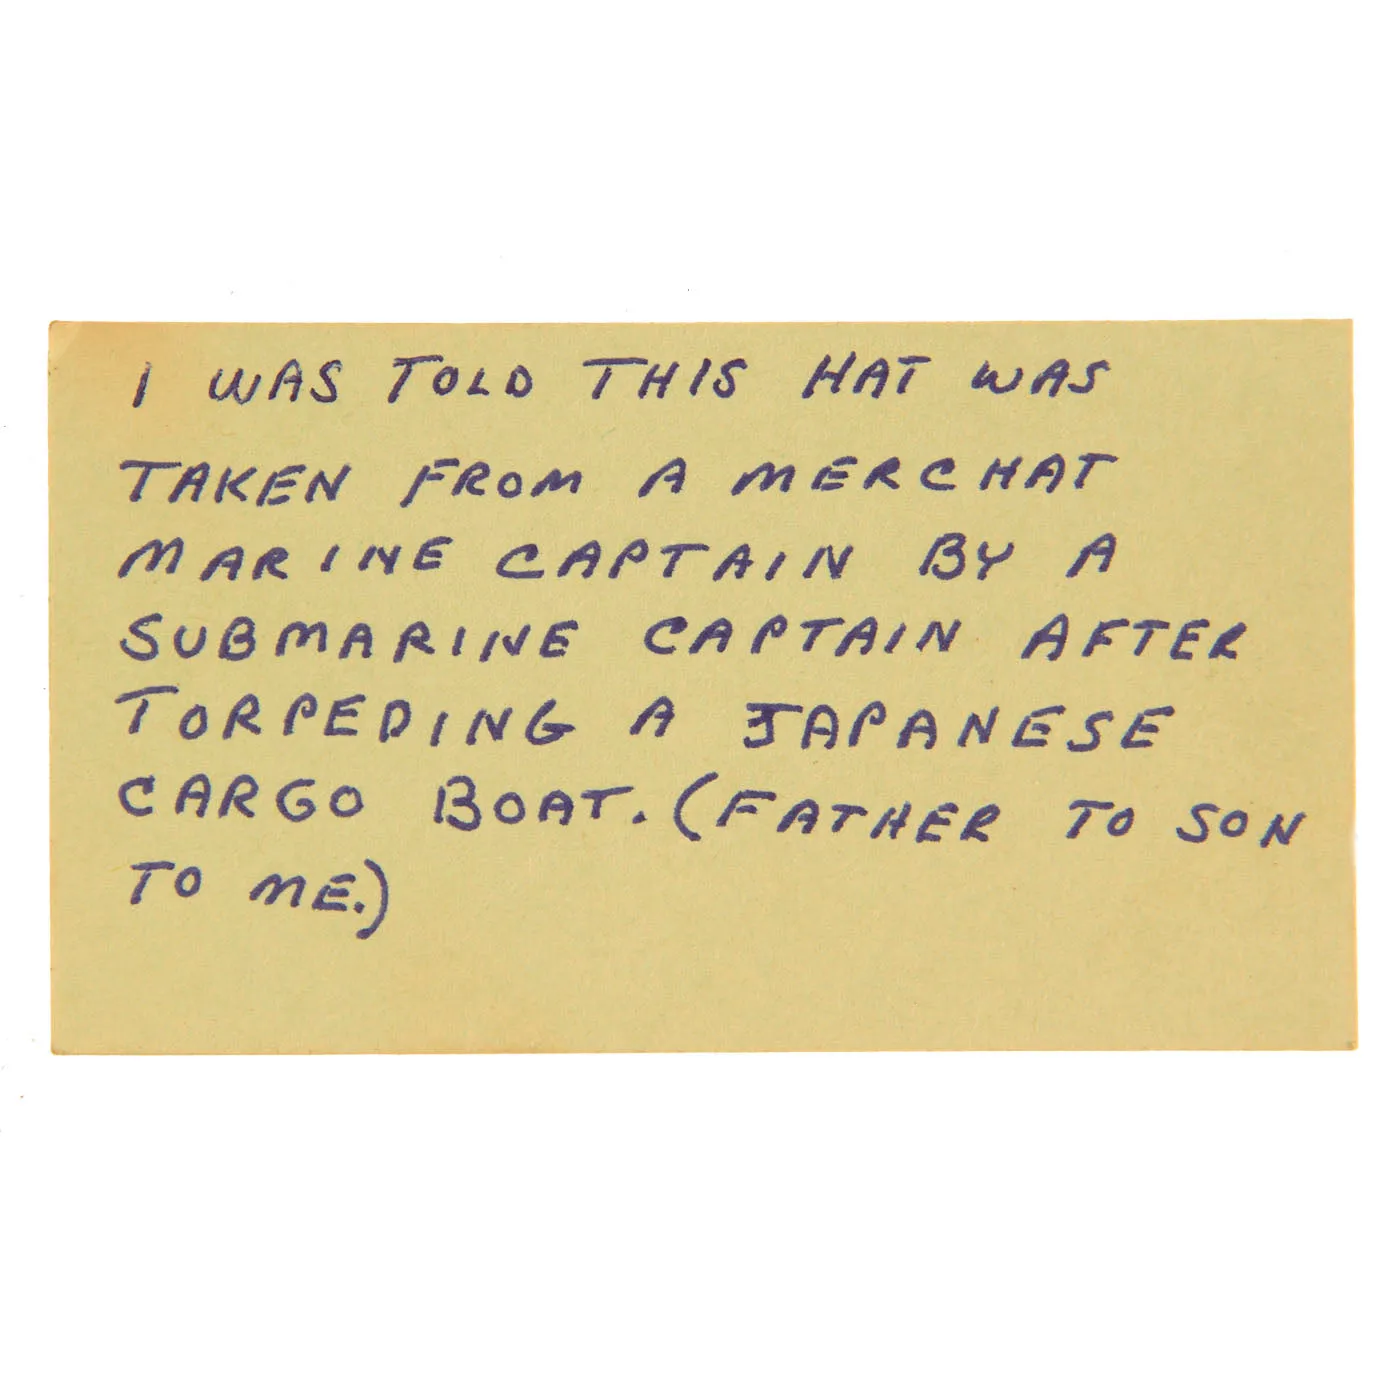 I WAS TOLD THIS HAT WAS
TAKEN FROM A MERCHAT
MARINE CAPTAIN BY A
SUBMARINE CAPTAIN AFTER
TORPEDING A JAPANESE
CARGO BOAT. (FATHER TO SON
TO ME.)